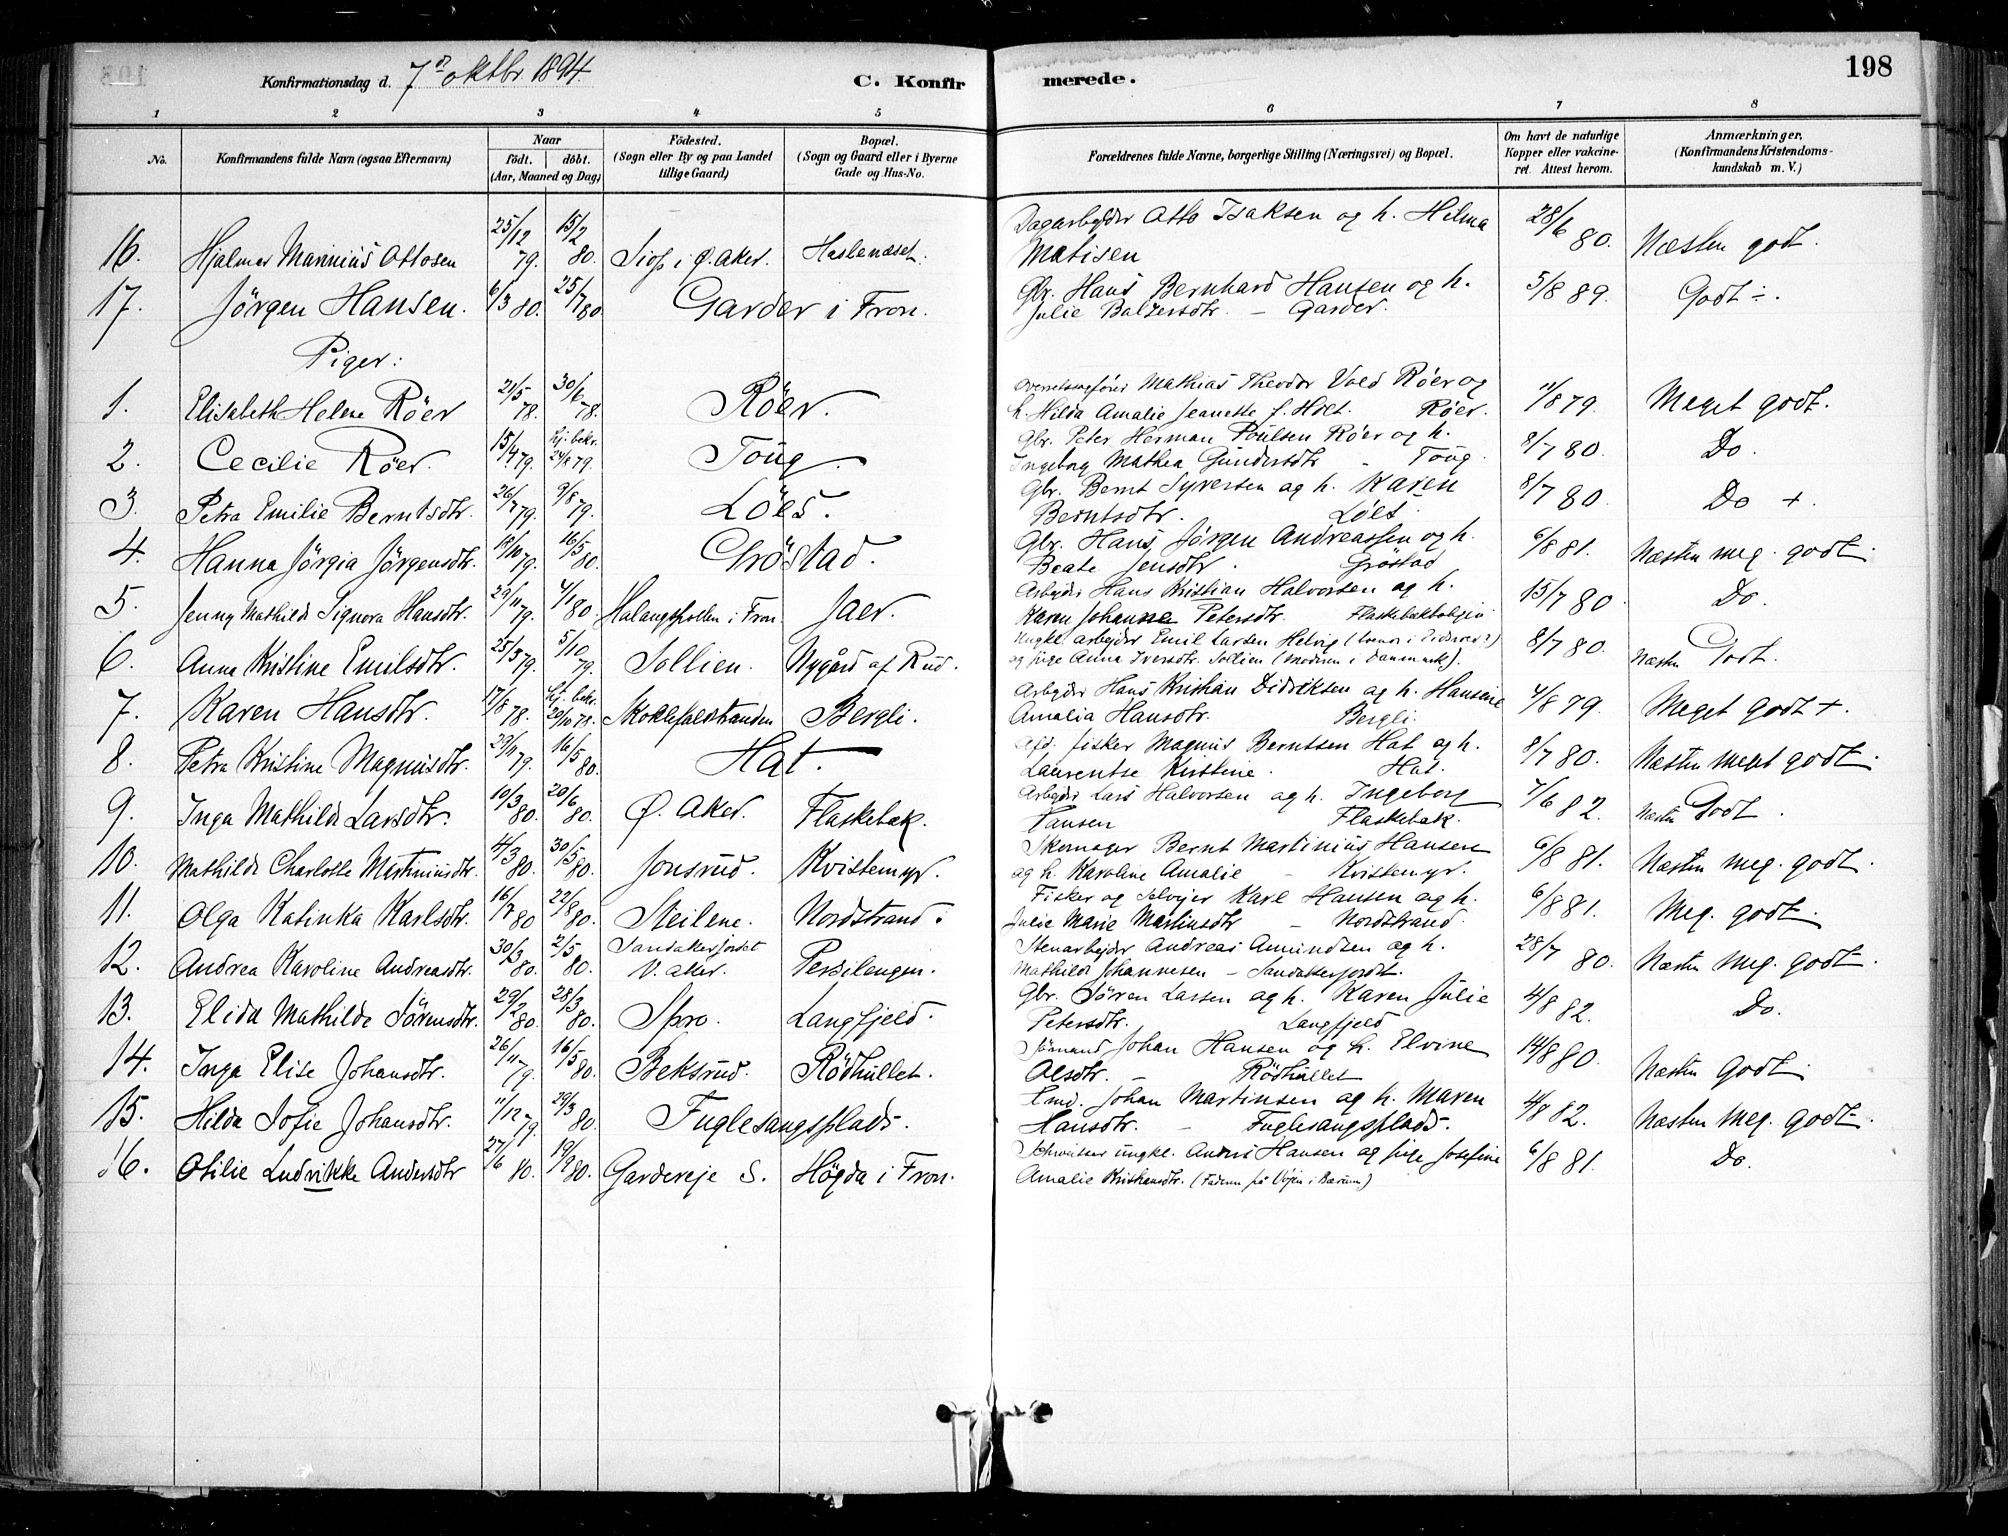 198
Konfirmationsdag d. 7de oktbr. 1894.
C. Konfirmerede.
1 2 3 4 5 6 7 8
No.
Konfirmandens fulde Navn (ogsaa Efternavn)
Naar
födt. döbt.
(Aar, Maaned og Dag)
Födested.
(Sogn eller By og paa Landet
tillige Gaard)
Bopæl.
(Sogn og Gaard eller i Byerne
Gade og Hus-No.
Forældrenes fulde Navne, borgerlige Stilling (Næringsvei) og Bopæl.
Om havt de naturlige
Kopper eller vakcine-
ret. Attest herom.
Anmærkninger.
(Konfirmandens Kristendoms-
kundskab m. V.)
16. Hjalmar Marinius Ottosen 25/12 79. 15/2 80. i Ø. Aker. Haslenæset. Dagarbejder Otto Isaksen og h. Hilma
Matisen 28/6 80. Næsten godt.
17. Jörgen Hansen. 6/3 80. 25/7 80. Garder i Fron. Gbr. Hans Bernhard Hansen og h.
Julie Baltzersdtr. – Garder. 5/8 89. Godt ÷.
Piger:
1. Elisabeth Helene Röer 21/5 78. 30/6 78. Röer. Mathias Theodor Vold Röer og
h. Hilda Amalie Jeanette f. Holt. Röer. 11/8 79. Meget godt.
2. Cecilie Röer. 15/4 79. hj. bekr. 79. Toug. Gbr. Peter Herman Poulsen Röer og h.
Ingeborg Mathea Gundersdtr – Toug. 8/7 80. Do.
3. Petra Emilie Berntsdtr. 26/7 79. 9/8 79. Löes. Gbr. Bernt Syversen og h. Karen
Berntsdtr. Löes. 8/7 80. Do +.
4. Hanna Jörgia Jörgensdtr. 18/10 79. 16/5 80. Gröstad. Gbr. Hans Jörgen Andreassen og h.
Beate Jensdtr. Gröstad 6/8 81. Næsten meg. godt.
5. Jenny Mathilde Signora Hansdtr. 29/11 79. 4/1 80. Halangspollen i Fron. Jaer. Arbejder Hans Kristian Halvorsen og h.
Karen Johanne Petersdtr. 15/7 80. Do.
6. Anna Kristine Emilsdtr. 25/3 79. 5/10 79. Sollien. Nygård af Rud. Ungkl. arbejder Emil Larsen Helvig
og pige Anna Iversdtr. Sollien (Moderen i Danmark). 8/7 80. Næsten Godt.
7. Karen Hansdtr. 17/8 78. hj. bekr. 20/10 78. Skoklefaldstranden Bergli. Arbejder Hans Kristian Didriksen og h. Hansine
Amalia Hansdtr. Bergli. 4/8 79. Meget godt +.
8. Petra Kristine Magnusdtr. 29/11 79. 16/5 80. Hat. Afd. fisker Magnus Berntsen Hat og h.
Laurentse Kristine. Hat. 8/7 80. Næsten meget godt.
9. Inga Mathilde Larsdtr. 10/3 80. 20/6 80. Ø. Aker. Flaskebæk. Arbejder Lars Halvorsen og h. Ingeborg
Hansen Flaskebæk. 7/6 82. Næsten Godt.
10. Mathilde Charlotte Martiniusdtr. 4/3 80. 30/5 80. Jonsrud. Kvistemyr. Skomager Bernt Martinius Hansen
og h. Karoline Amalie – Kvistemyr. 6/8 81. Næsten meg. godt.
11. Olga Katinka Karlsdtr. 16/7 80. 22/8 80. Steilene. Nordstrand. Fisker og selvejer Karl Hansen og h.
Julie Marie Martinsdtr – Nordstrand. 6/8 81. Meg. godt.
12. Andrea Karoline Andreasdtr. 30/3 80. 2/5 80. Sandakerjordet
V. Aker. Persilengen. Stenarbejder Andreas Amundsen og h.
Mathilde Johannesen – Sandakerjordet. 28/7 80. Næsten meg. godt.
13. Elida Mathilde Sörensdtr. 29/2 80. 28/3 80. Spro. Langfjeld. Gbr. Sören Larsen og h. Karen Julie
Petersdtr. Langfjeld 4/8 82. Do.
14. Inga Elise Johansdtr. 26/11 79. 16/5 80. Beksrud. Rödhullet. Sömand Johan Hansen og h. Elvine
Olsdtr. – Rödhullet 14/8 80. Næsten Godt.
15. Hilda Sofie Johansdtr. 11/12 79. 29/3 80. Fuglesangsplads. Johan Martinsen og h. Maren
Hansdtr. – Fuglesangsplads. 4/8 82. Næsten meg. godt.
16. Otilie Ludvikke Andersdtr 27/6 80. 19/9 80. Gardereje S. Högda i Fron. Schweitser ungkl. Anders Hansen og pige Josefine
Amalie Kristiansdtr. (Faderen på Vöjen i Bærum) 6/8 81. Do.